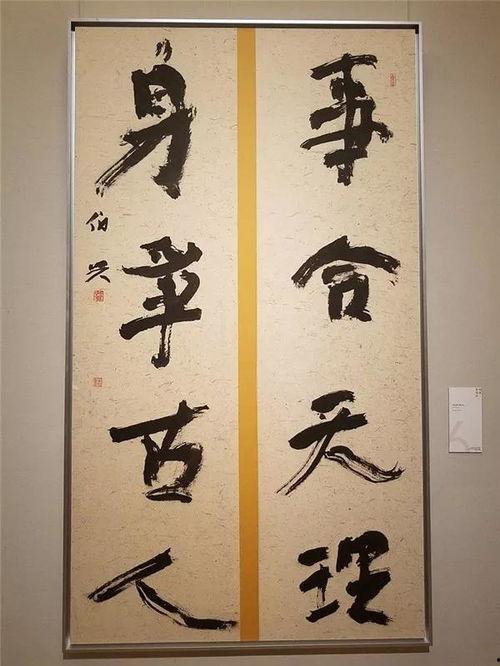 事合天理
身争古人
伯